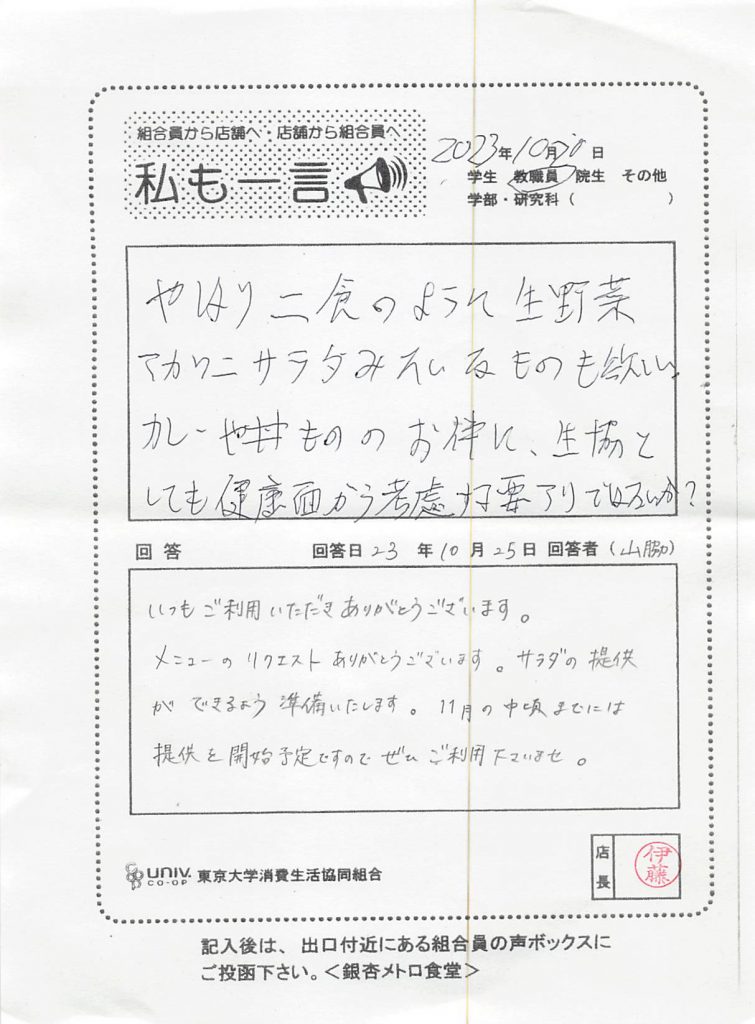 組合員から店舗へ・店舗から組合員へ
私も一言
2023年10月20日
学生 教職員 院生 その他
学部・研究科（ ）
やはり二食のように生野菜
アカワニサラダみたいなものも欲しい。
カレーや丼もののお伴に、生協と
しても健康面から考慮する要アリではないか？
回答 回答日 23年10月25日 回答者（山脇）
いつもご利用いただきありがとうございます。
メニューのリクエストありがとうございます。サラダの提供
ができるよう準備いたします。11月の中頃までには
提供を開始予定ですのでぜひご利用下さいませ。
UNIV. CO-OP 東京大学消費生活協同組合
店長 伊藤
記入後は、出口付近にある組合員の声ボックスに
ご投函下さい。＜銀杏メトロ食堂＞